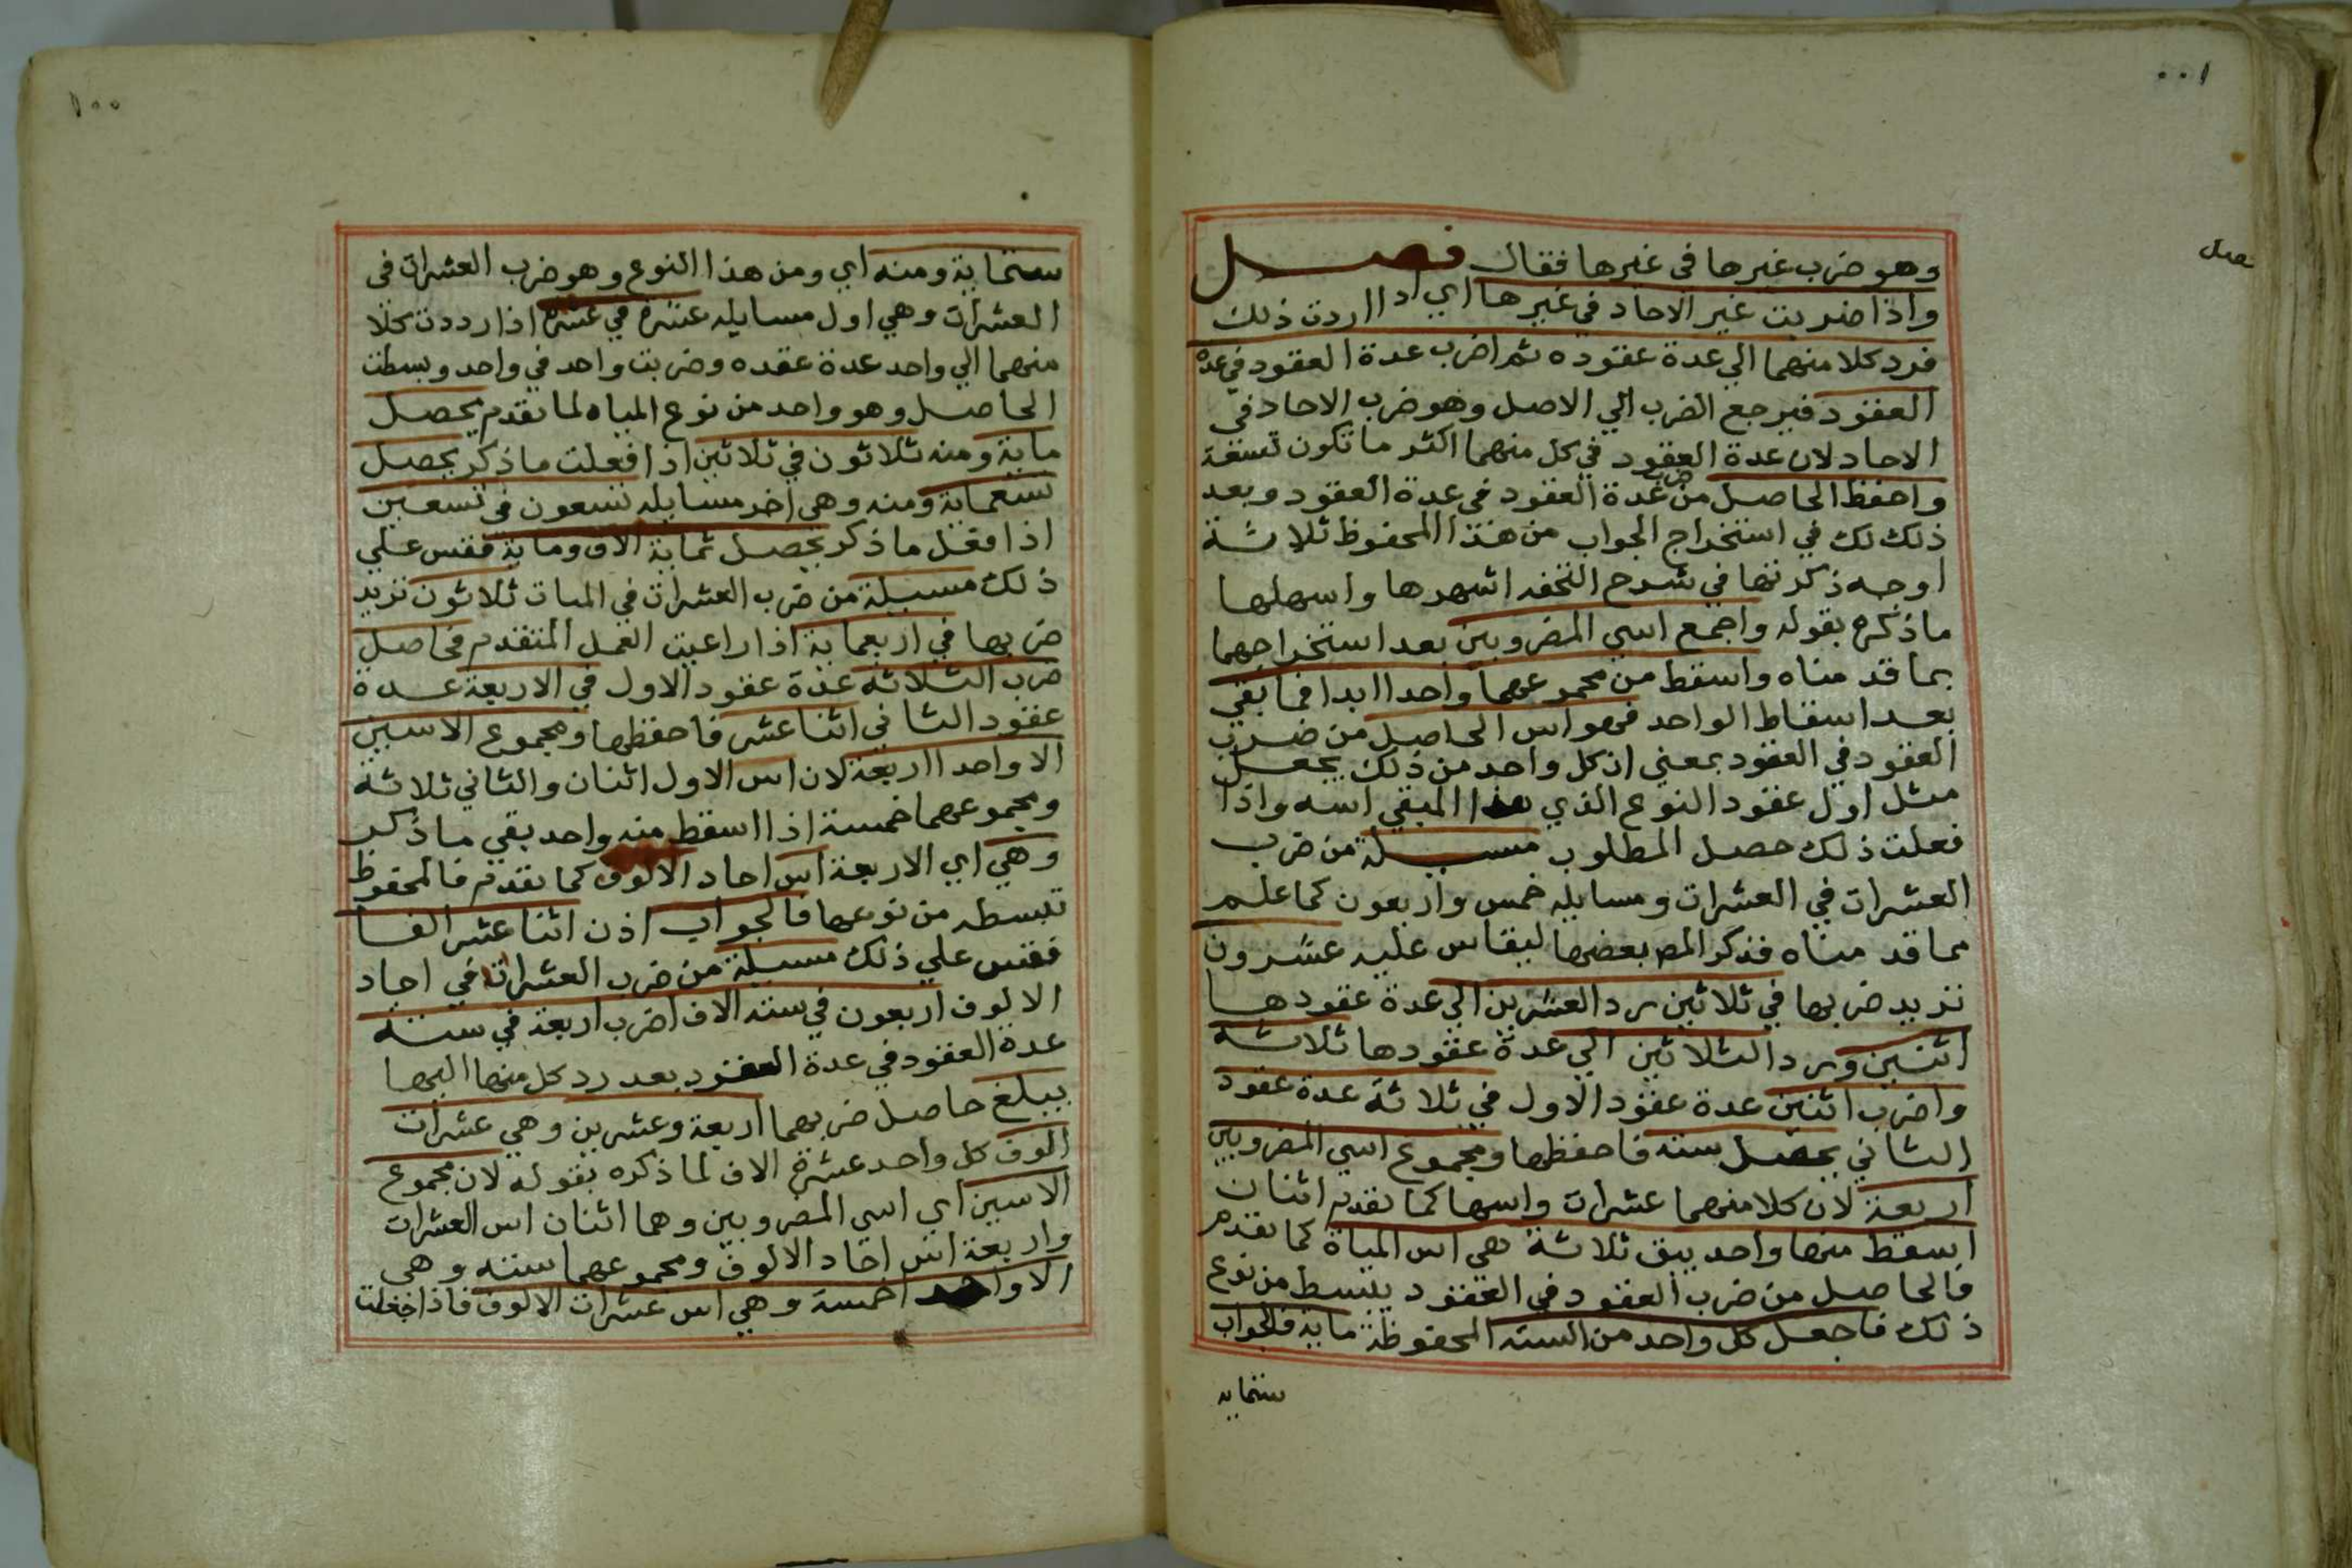 ٠٠١
فصل
وهو ضرب غيرها في غيرها فقال فصل
واذا ضربت غير الاحاد في غيرها اي اذا اردت ذلك
فرد كلا منهما الي عدة عقوده ثم اضرب عدة العقود في عدة
العقود فيرجع الضرب الي الاصل وهو ضرب الاحاد في
الاحاد لان عدة العقود في كل منهما اكثر ما تكون تسعة
واحفظ الحاصل من ضرب عدة العقود في عدة العقود وبعد
ذلك لك في استخراج الجواب من هذا المحفوظ ثلاثة
اوجه ذكرتها في شرح التحفه اشهرها واسهلها
ما ذكره بقوله واجمع اسي المضروبين بعد استخراجهما
بما قدمناه واسقط من مجموعهما واحدا ابدا فما بقي
بعد اسقاط الواحد فهو اس الحاصل من ضرب
العقود في العقود بمعني ان كل واحد من ذلك يجعل
مثل اول عقود النوع الذي هذا المبقي اسه واذا
فعلت ذلك حصل المطلوب مسيلة من ضرب
العشرات في العشرات ومسايله خمس واربعون كما علم
مما قدمناه فذكر المص بعضها ليقاس عليه عشرون
تريد ضربها في ثلاثين رد العشرين الي عدة عقودها
اثنين ورد الثلاثين الي عدة عقودها ثلاثة
واضرب اثنين عدة عقود الاول في ثلاثة عدة عقود
الثاني يحصل سته فاحفظها ومجموع اسي المضروبين
اربعة لان كلا منهما عشرات واسها كما تقدم اثنان
اسقط منها واحد يبق ثلاثة هي اس المياة كما تقدم
فالحاصل من ضرب العقود في العقود يبسط من نوع
ذلك فاجعل كل واحد من السته المحفوظة ماية فالجواب
ستماية
١٠٠
ستماية ومنه اي ومن هذا النوع وهو ضرب العشرات في
العشرات وهي اول مسايله عشرة في عشرة اذا رددت كلا
منهما الي واحد عدة عقده وضربت واحد في واحد وبسطت
الحاصل وهو واحد من نوع المياه لما تقدم يحصل
ماية ومنه ثلاثون في ثلاثين اذا فعلت ما ذكر يحصل
تسعماية ومنه وهي اخر مسايله تسعون في تسعين
اذا فعل ما ذكر يحصل ثماية الاف وماية فقس علي
ذلك مسيلة من ضرب العشرات في الميات ثلاثون تريد
ضربها في اربعماية اذا راعيت العمل المتقدم فحاصل
ضرب الثلاثه عدة عقود الاول في الاربعة عدة
عقود الثاني اثنا عشر فاحفظها ومجموع الاسين
الا واحدا اربعة لان اس الاول اثنان والثاني ثلاثة
ومجموعهما خمسة اذا اسقط منه واحد بقي ما ذكر
وهي اي الاربعة اس احاد الالوف كما تقدم فالمحفوظ
تبسطه من نوعها فالجواب اذن اثنا عشر الفا
فقس علي ذلك مسيلة من ضرب العشرات في احاد
الالوف اربعون في سته الاف اضرب اربعة في ستة
عدة العقود في عدة العقود بعد رد كل منهما اليها
يبلغ حاصل ضربهما اربعة وعشرين وهي عشرات
الوف كل واحد عشرة الاف لما ذكره بقوله لان مجموع
الاسين اي اسي المضروبين وهما اثنان اس العشرات
واربعة اس احاد الالوف ومجموعهما سته وهي
الا واحد اخمسة وهي اس عشرات الالوف فاذا جعلت